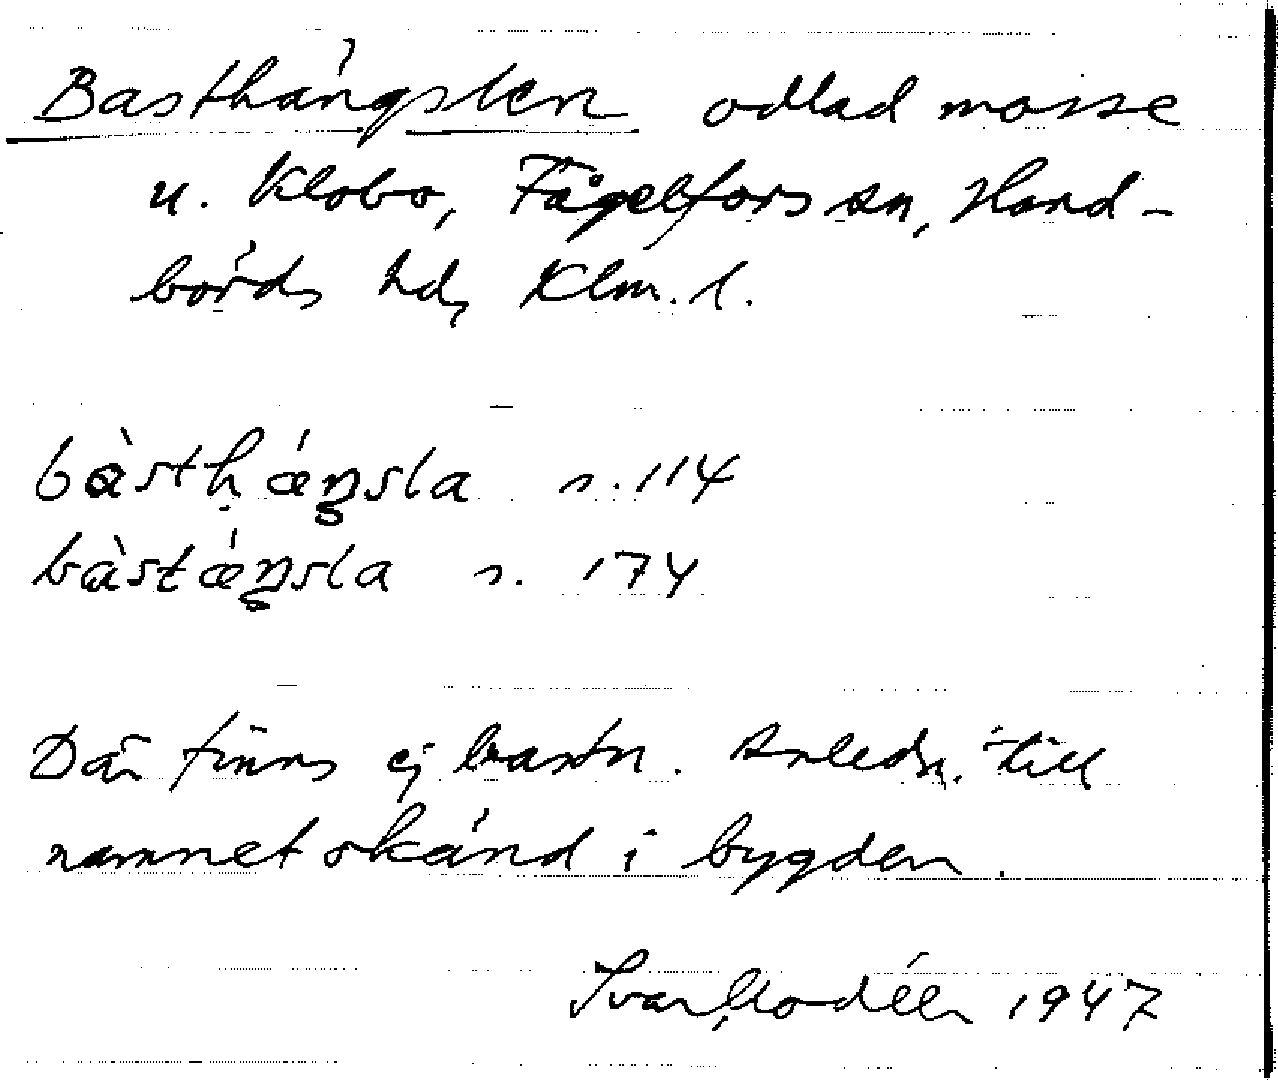 Basthängslen odlad mosse
u. Klobo, Fågelfors sn, Hand-
börds hd, Klm. l.
bàsthæ̀ŋsla s. 114
bàstæ̀ŋsla s. 174
Där finns ej bastn. Anledn. till
namnet okänd i bygden.
Ivar Modéer 1947